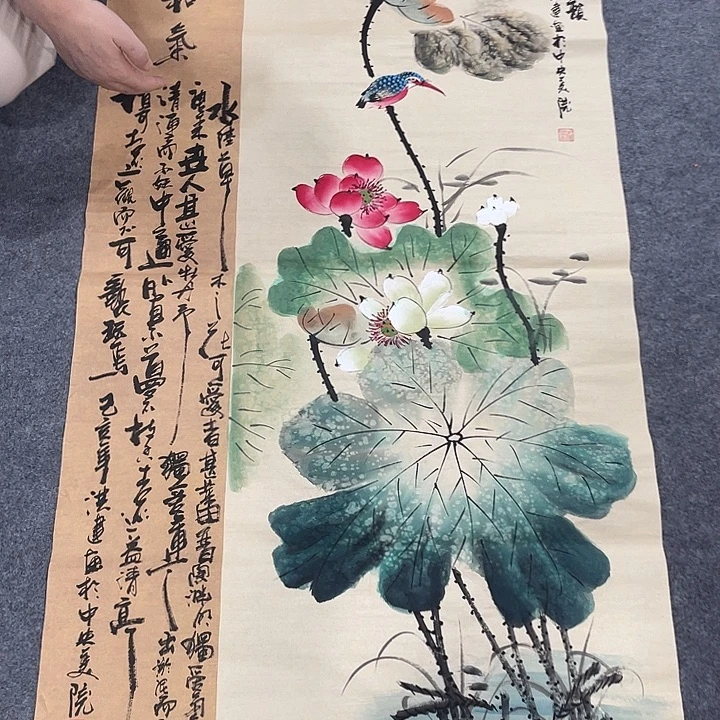 建畫於中央美院
氣
水陸草木之花可愛者甚蕃晉陶淵明獨愛菊
世人甚愛牡丹予獨愛蓮之出淤泥而
清漣而不妖中通外直不蔓不枝香遠益清亭
觀而不可褻玩焉
己亥年洪建畫於中央美院